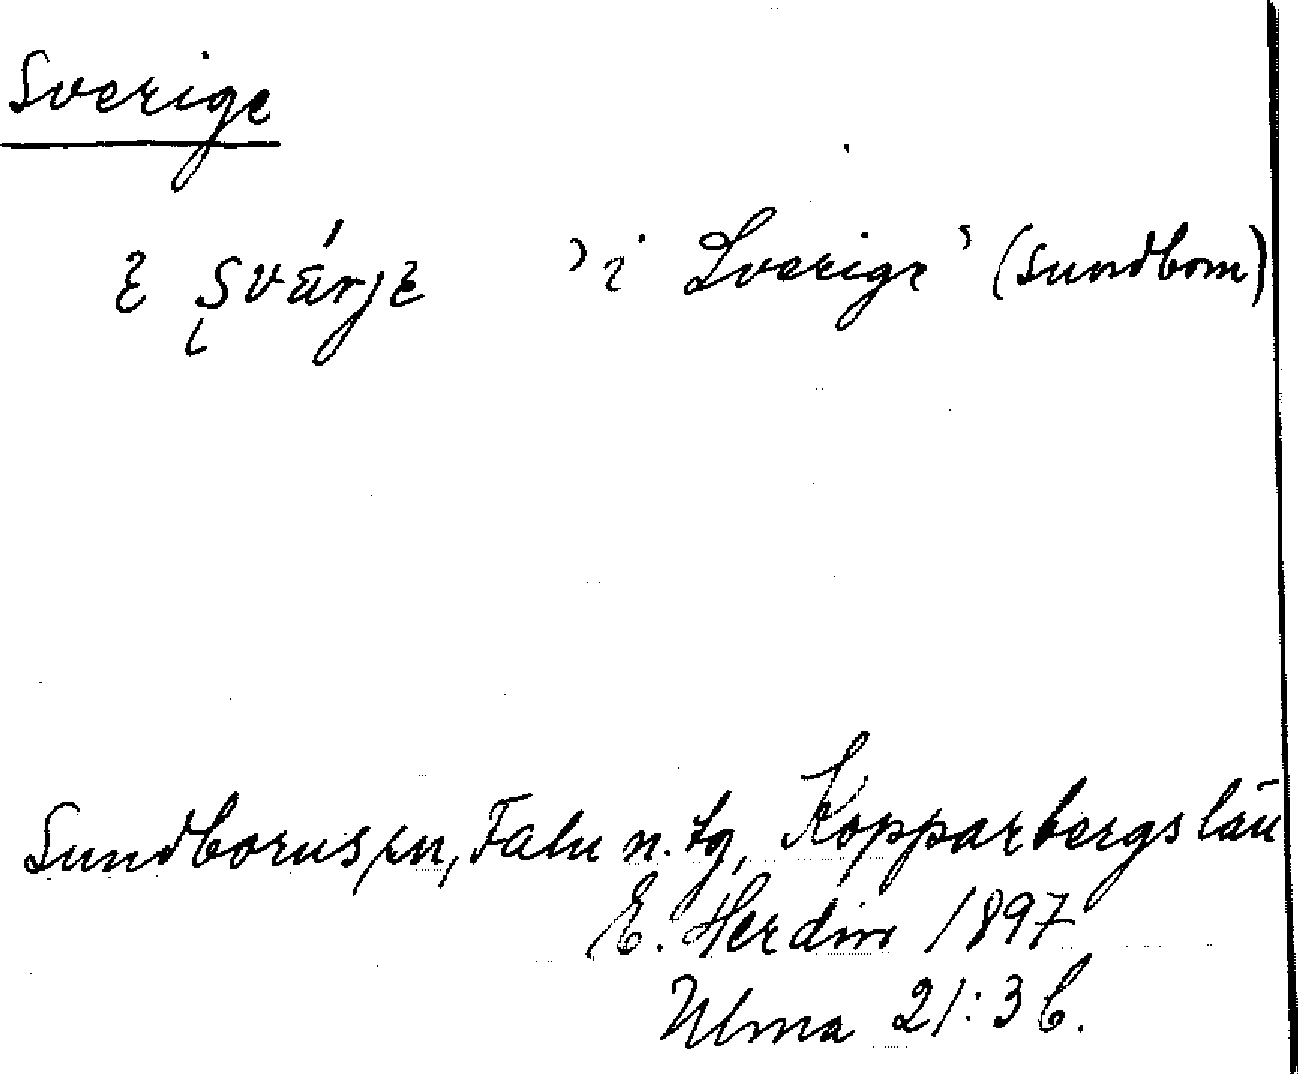 Sverige
ɛ Svärjɛ 'i Sverige' (Sundborn)
Sundborns sn, Falu n. tg, Kopparbergs län
E. Herdin 1897
Ulma 21:3 b.